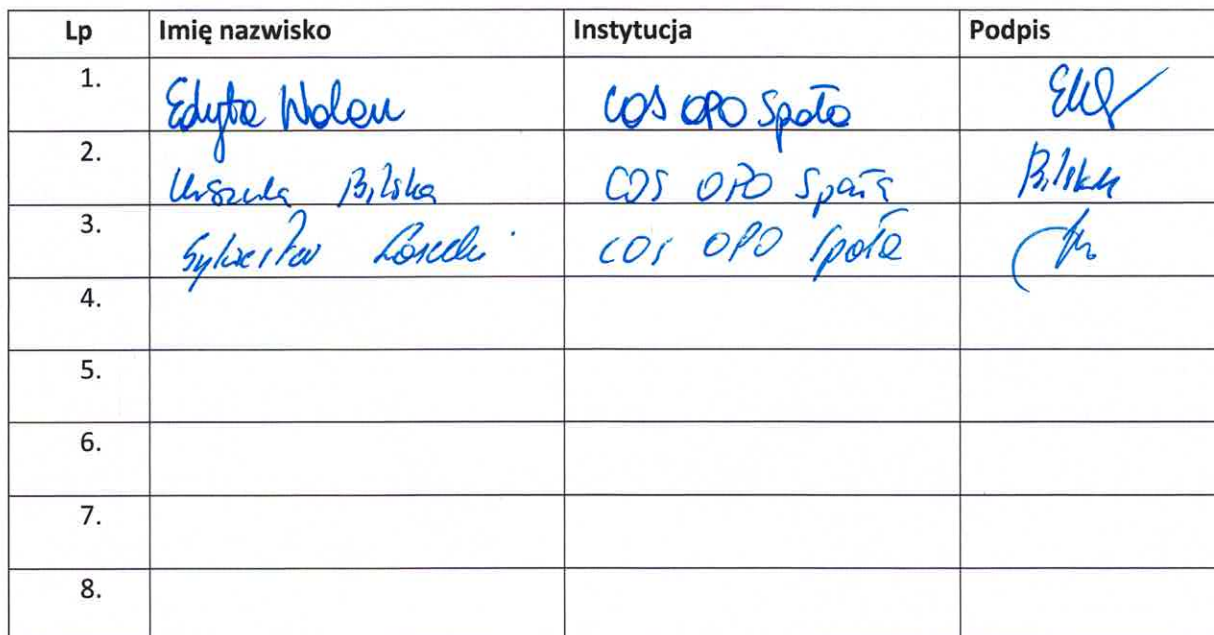 Lp Imię nazwisko Instytucja Podpis
1. Edyta Wolan COS OPO Spała
2. Urszula Bilska COS OPO Spała Bilska
3. Sylwester COS OPO Spała
4.
5.
6.
7.
8.